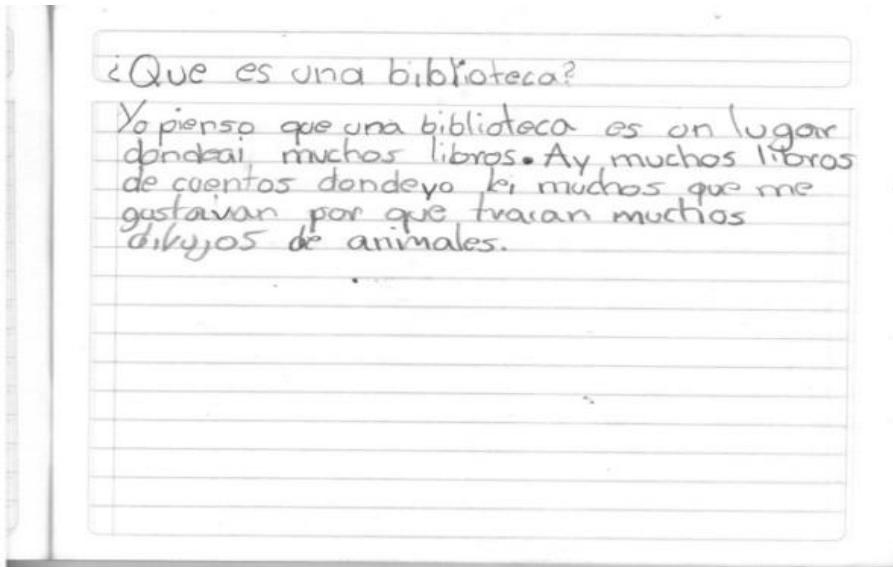 ¿Que es una biblioteca?
Yo pienso que una biblioteca es un lugar
dondeai muchos libros. Ay muchos libros
de cuentos dondeyo lei muchos que me
gustaivan por que traian muchos
dibujos de animales.